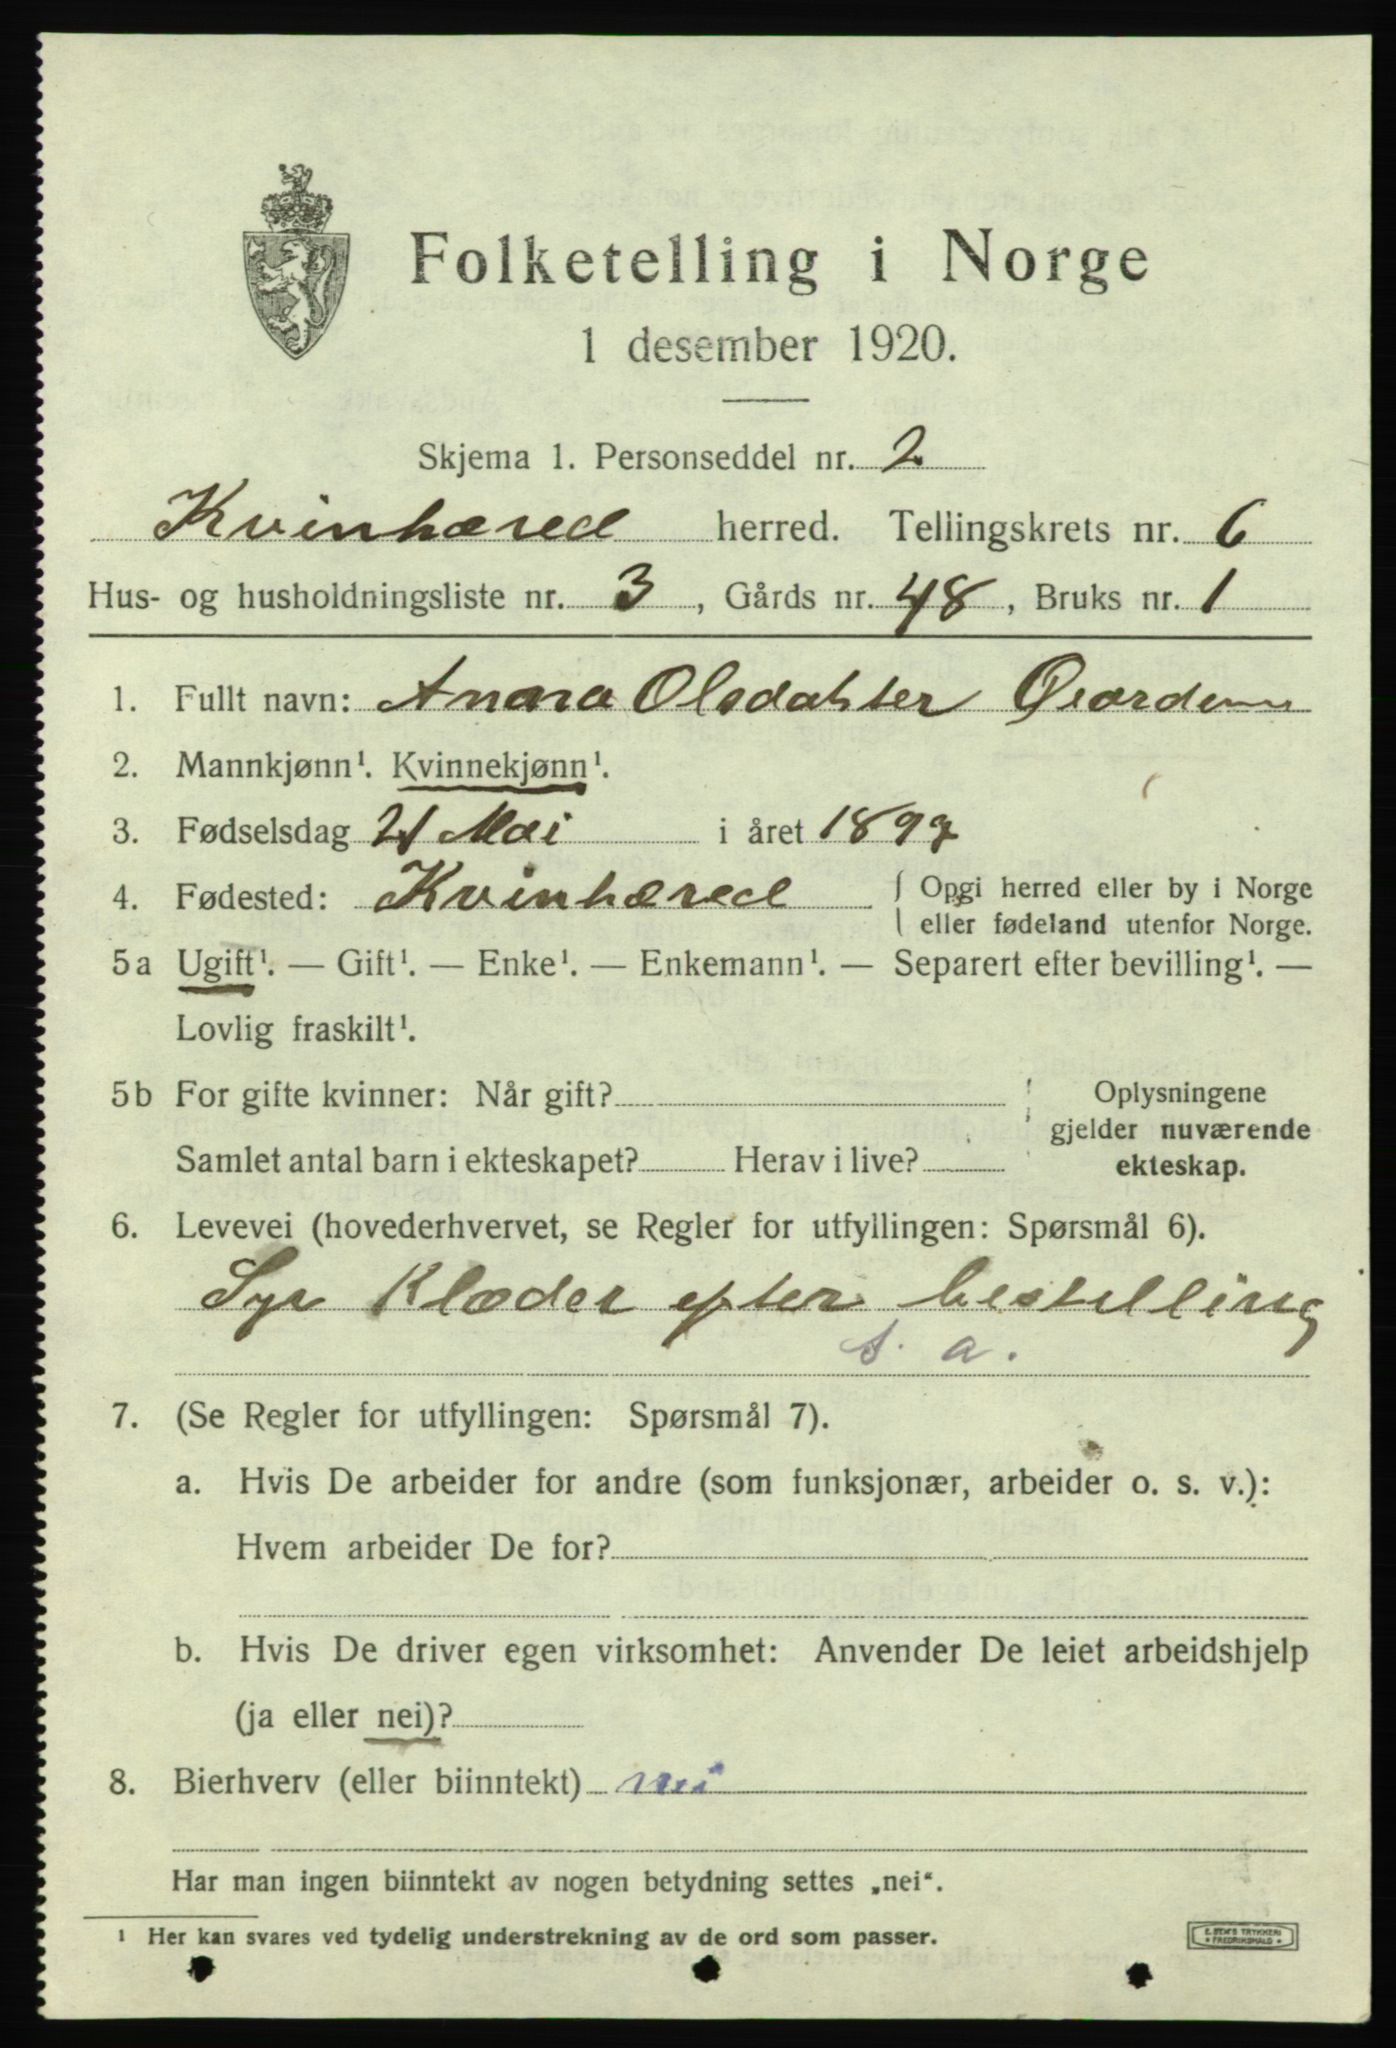 Folketelling i Norge
1 desember 1920.
Skjema 1. Personseddel nr. 2
Kvinhæred herred. Tellingskrets nr. 6
Hus- og husholdningsliste nr. 3, Gårds nr. 48, Bruks nr. 1
1. Fullt navn: Anna Olsdatter
2. Mannkjønn¹. Kvinnekjønn¹.
3. Fødselsdag 21 Mai i året 1897
4. Fødested: Kvinhæred { Opgi herred eller by i Norge
eller fødeland utenfor Norge.
5a Ugift¹. — Gift¹. — Enke¹. — Enkemann¹. — Separert efter bevilling¹. —
Lovlig fraskilt¹.
5b For gifte kvinner: Når gift? Oplysningene
gjelder nuværende
Samlet antal barn i ekteskapet? Herav i live? ekteskap.
6. Levevei (hovederhvervet, se Regler for utfyllingen: Spørsmål 6).
Syr Klæder efter bestilling
s. a.
7. (Se Regler for utfyllingen: Spørsmål 7).
a. Hvis De arbeider for andre (som funksjonær, arbeider o. s. v.):
Hvem arbeider De for?
b. Hvis De driver egen virksomhet: Anvender De leiet arbeidshjelp
(ja eller nei)?
8. Bierhverv (eller biinntekt) nei
Har man ingen biinntekt av nogen betydning settes „nei“.
¹ Her kan svares ved tydelig understrekning av de ord som passer.
TRYKKERI
FREDRIKSHALD